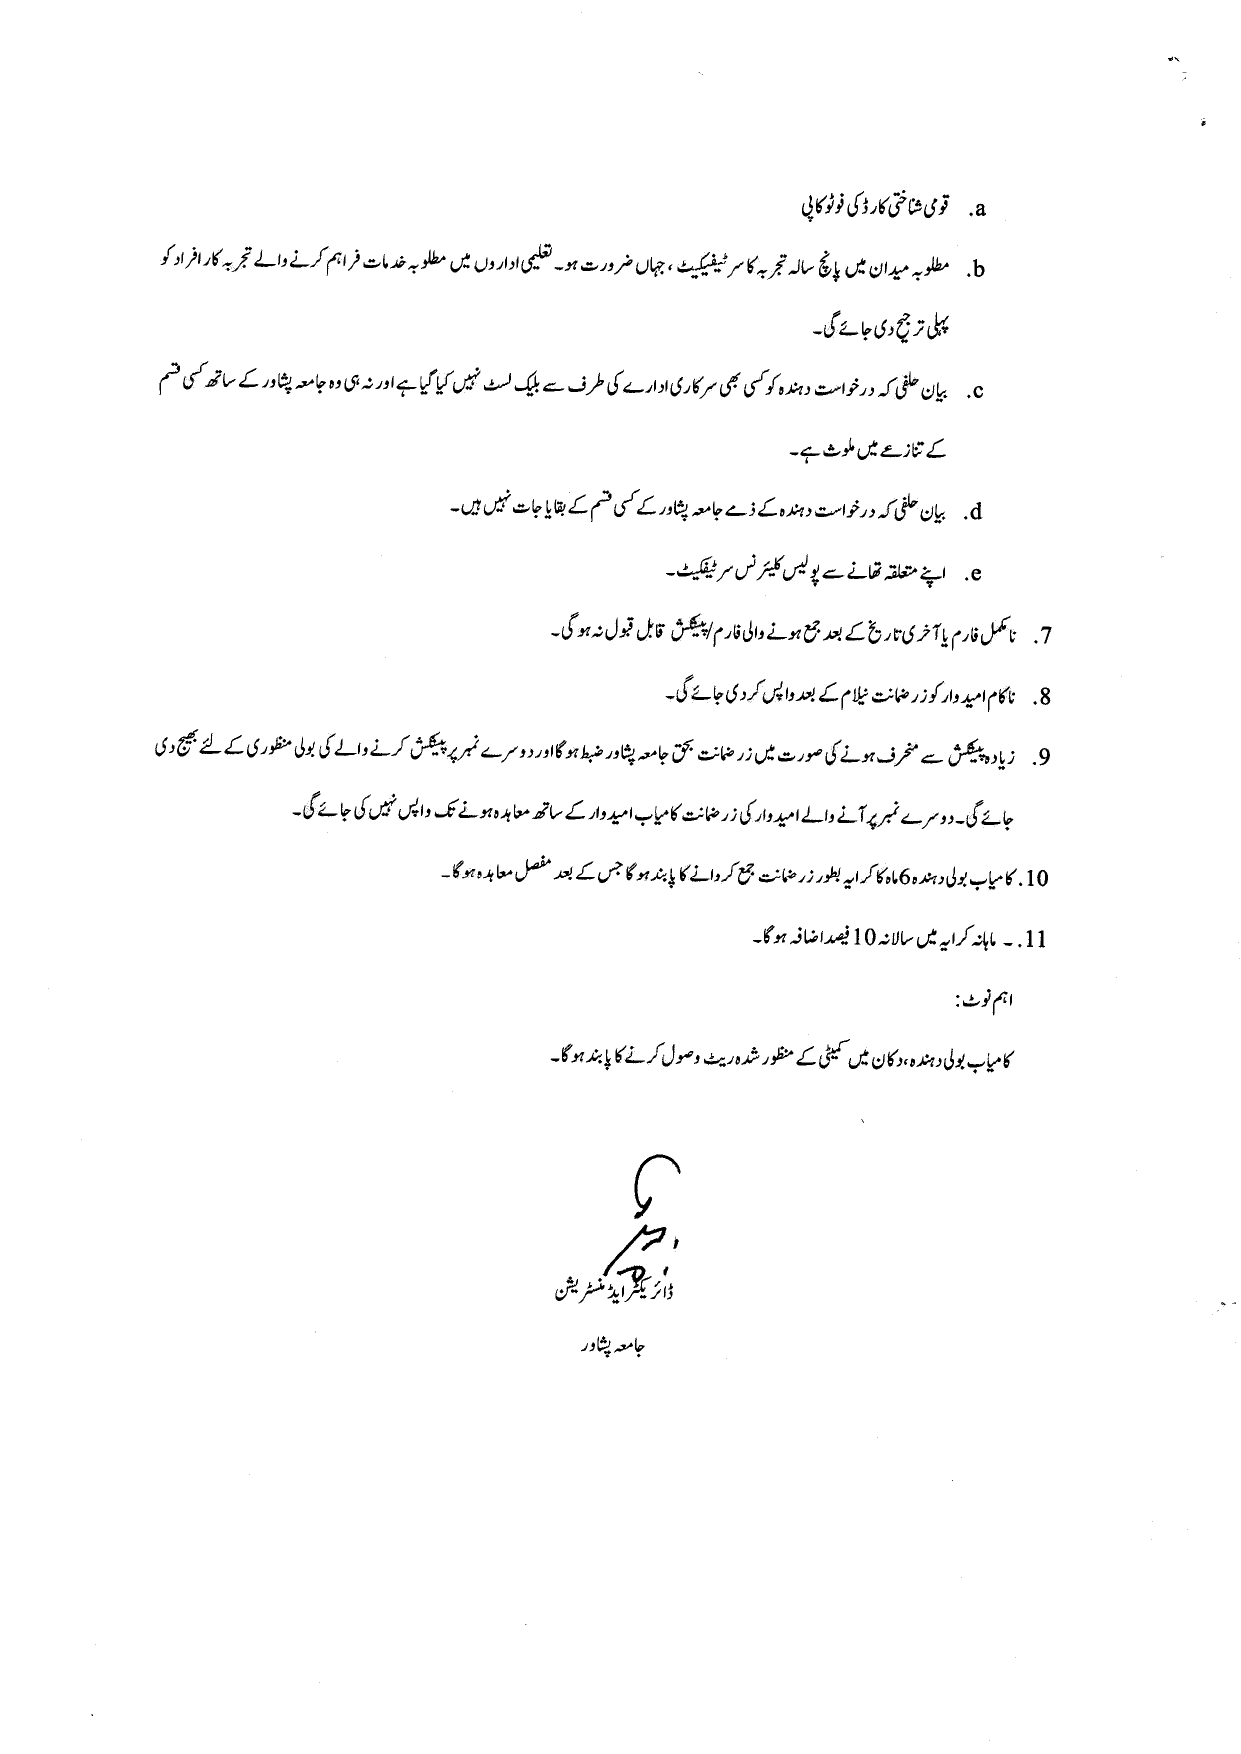 a. قومی شناختی کارڈ کی فوٹو کاپی
b. مطلوبہ میدان میں پانچ سالہ تجربہ کا سرٹیفیکیٹ، جہاں ضرورت ہو۔ تعلیمی اداروں میں مطلوبہ خدمات فراہم کرنے والے تجربہ کار افراد کو
پہلی ترجیح دی جائے گی۔
c. بیان حلفی کہ درخواست دہندہ کو کسی بھی سرکاری ادارے کی طرف سے بلیک لسٹ نہیں کیا گیا ہے اور نہ ہی وہ جامعہ پشاور کے ساتھ کسی قسم
کے تنازعے میں ملوث ہے۔
d. بیان حلفی کہ درخواست دہندہ کے ذمے جامعہ پشاور کے کسی قسم کے بقایا جات نہیں ہیں۔
e. اپنے متعلقہ تھانے سے پولیس کلیئرنس سرٹیفکیٹ۔
7. نامکمل فارم یا آخری تاریخ کے بعد جمع ہونے والی فارم/پیشکش قابل قبول نہ ہوگی۔
8. ناکام امیدوار کو زر ضمانت نیلام کے بعد واپس کر دی جائے گی۔
9. زیادہ پیشکش سے منحرف ہونے کی صورت میں زر ضمانت بحق جامعہ پشاور ضبط ہوگا اور دوسرے نمبر پر پیشکش کرنے والے کی بولی منظوری کے لئے بھیج دی
جائے گی۔ دوسرے نمبر پر آنے والے امیدوار کی زر ضمانت کامیاب امیدوار کے ساتھ معاہدہ ہونے تک واپس نہیں کی جائے گی۔
10. کامیاب بولی دہندہ 6 ماہ کا کرایہ بطور زر ضمانت جمع کروانے کا پابند ہوگا جس کے بعد مفصل معاہدہ ہوگا۔
11. ۔ ماہانہ کرایہ میں سالانہ 10 فیصد اضافہ ہوگا۔
اہم نوٹ:
کامیاب بولی دہندہ، دکان میں کمیٹی کے منظور شدہ ریٹ وصول کرنے کا پابند ہوگا۔
ڈائریکٹر ایڈمنسٹریشن
جامعہ پشاور